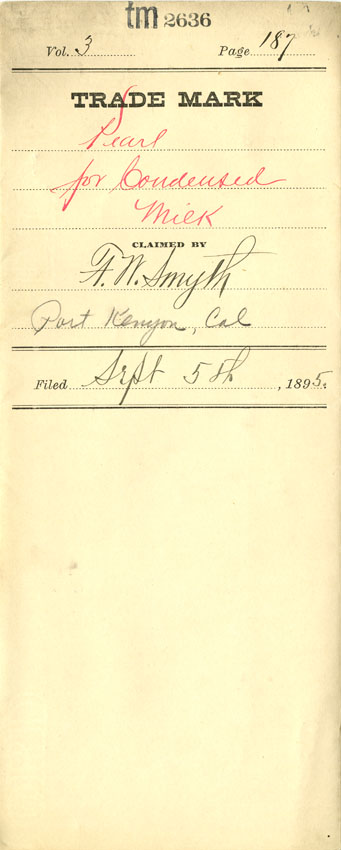 tm 2636
Vol. 3 Page 187
TRADE MARK
Pearl
for Condensed
Milk
CLAIMED BY
F. W. Smyth
Port Kenyon, Cal
Filed Sept 5th, 1895.